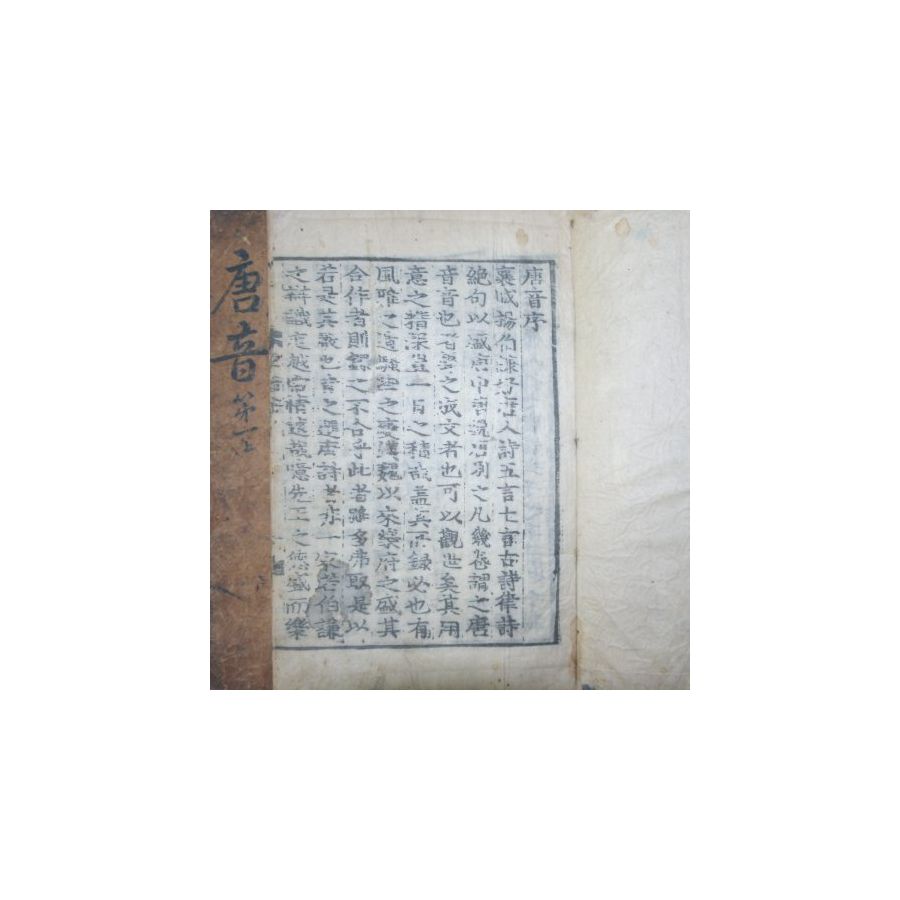 唐音序
襄城楊伯謙好唐人詩五言七言古詩律詩
絶句以盛唐中唐晚唐別之凡幾卷謂之唐
音音也者聲之成文者也可以觀世矣其用
意之精深豈一日之積哉盖其所録必也有
風雅之遺騷些之變漢魏以來樂府之盛其
合作者則録之不合乎此者雖多弗取是以
若是其嚴也昔之選唐詩者非一家若伯謙
之辯識度越常情遠哉噫先王之德盛而樂
唐音 第